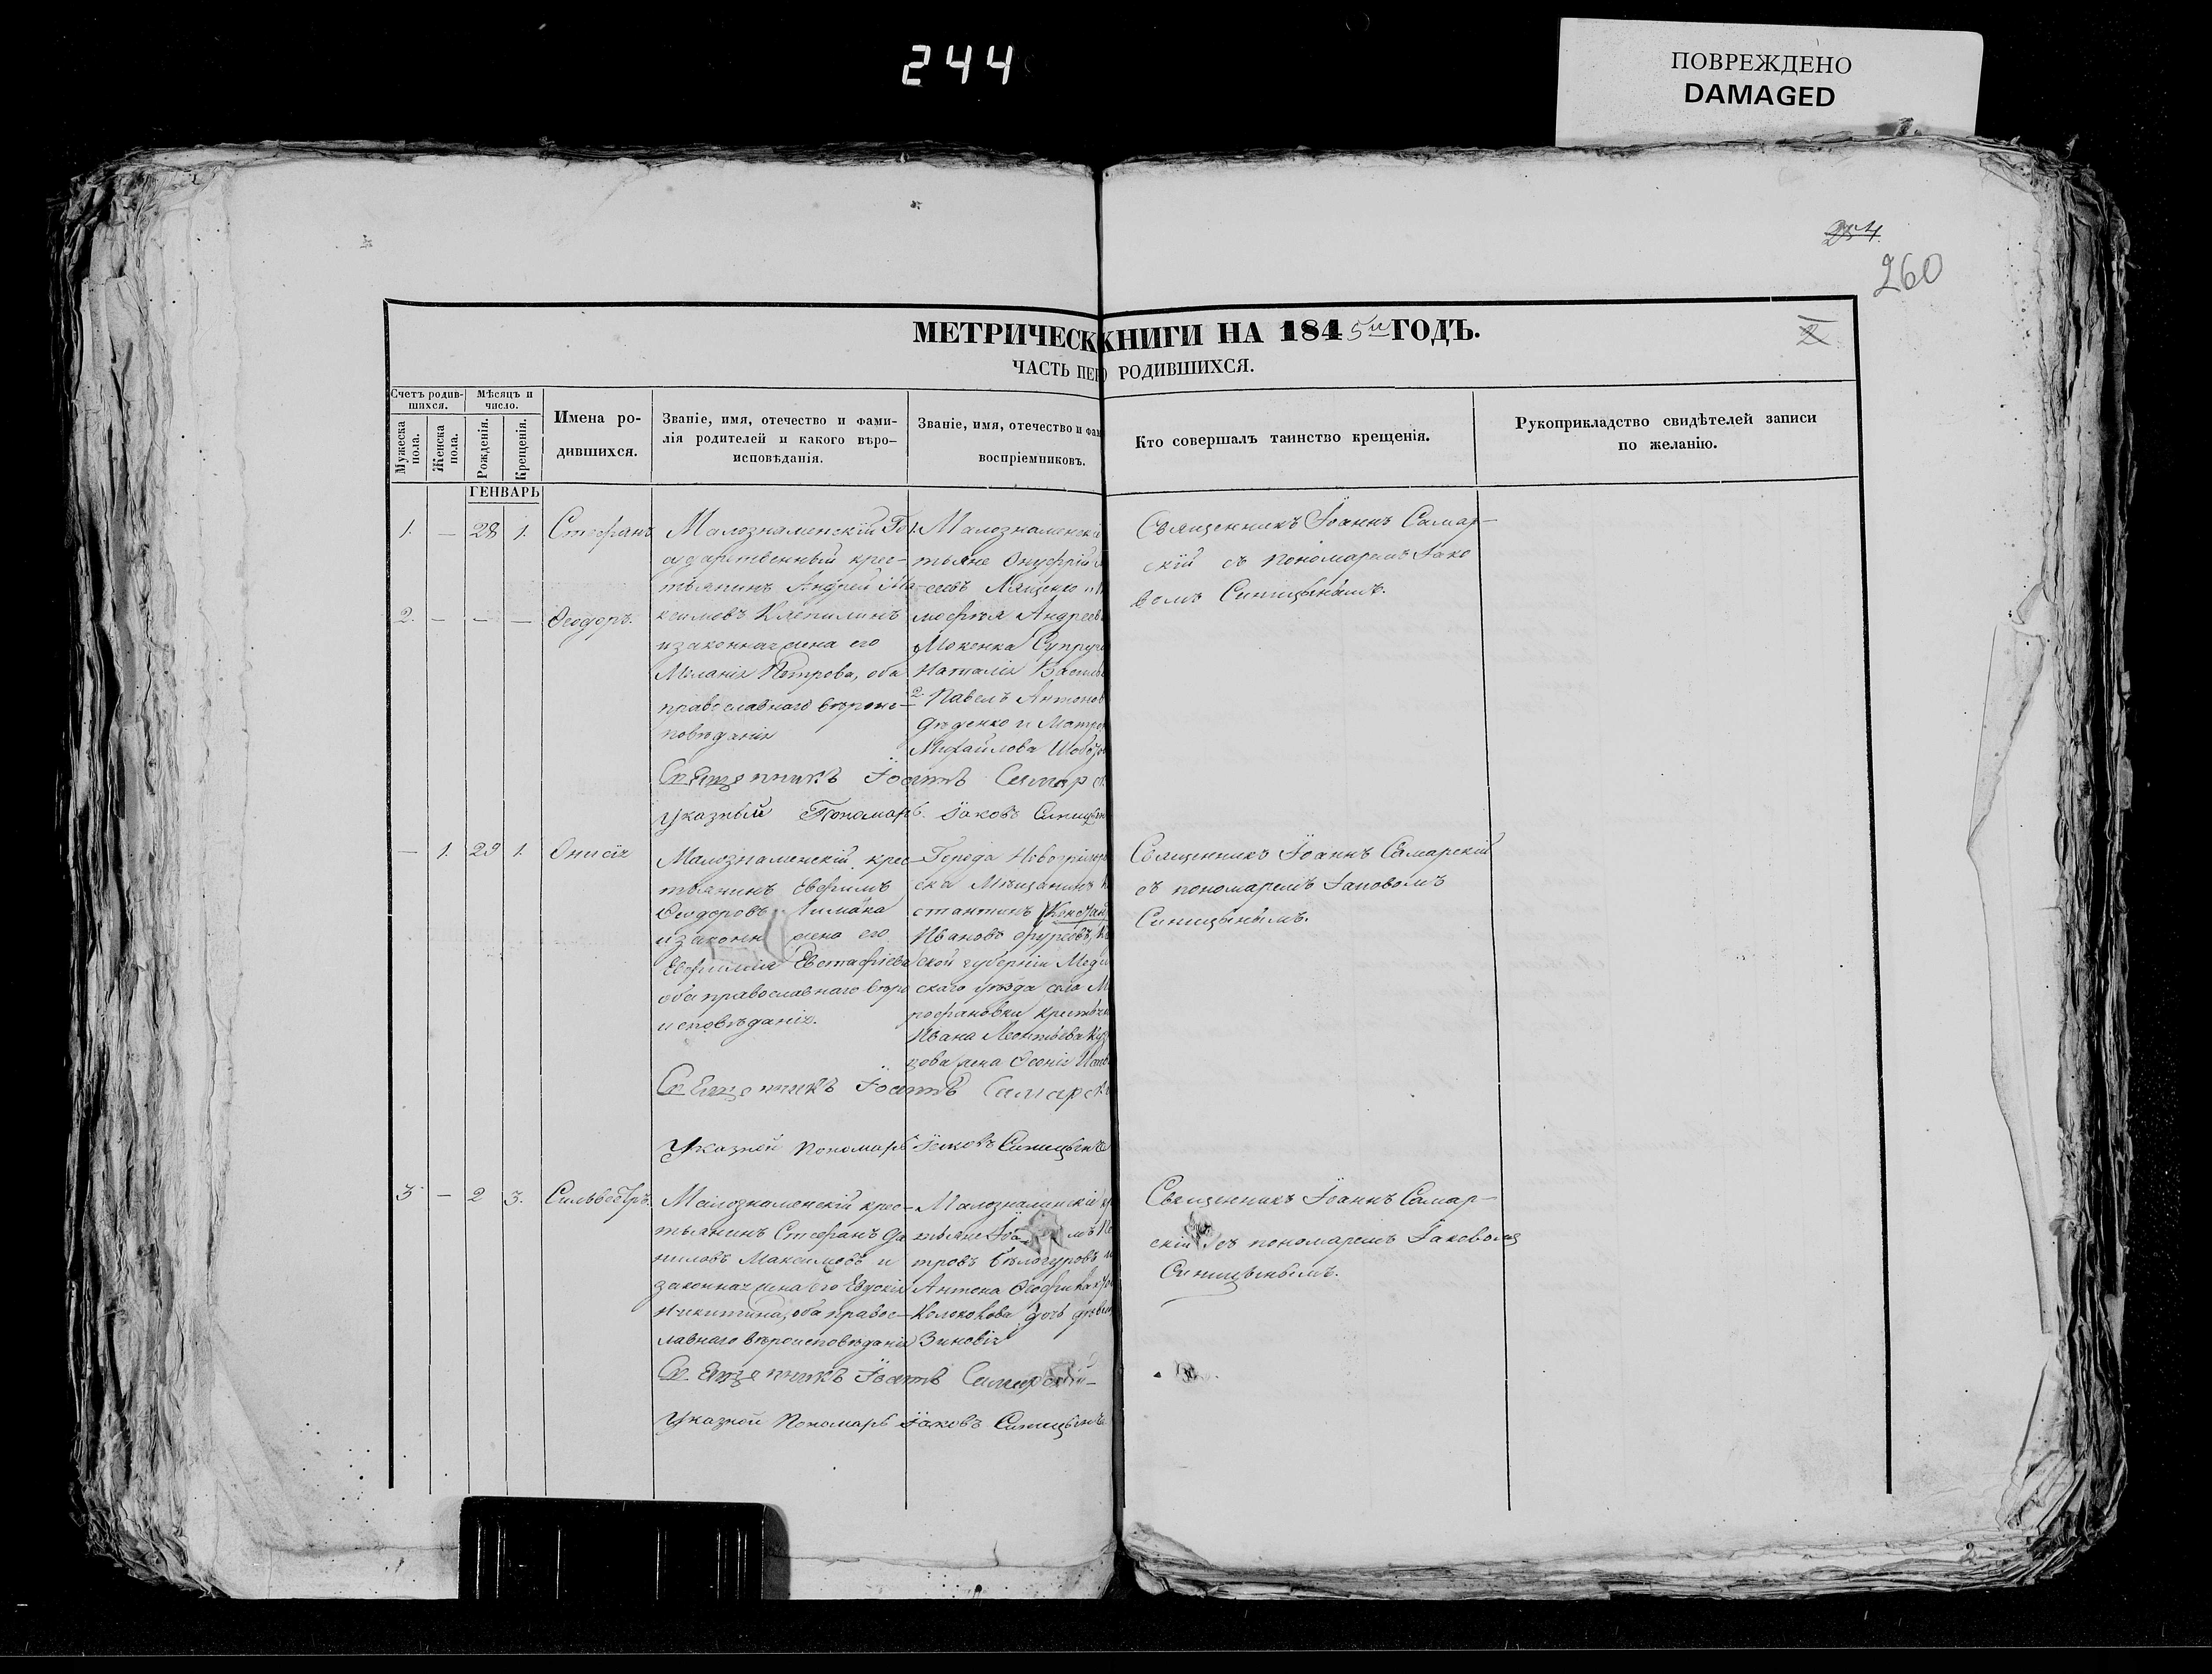 244
ПОВРЕЖДЕНО
DAMAGED
254.
260
МЕТРИЧЕСК КНИГИ НА 1845й ГОДЪ.
2
ЧАСТЬ ПЕР О РОДИВШИХСЯ.
Счетъ родив-
шихся.
Мужеска
пола.
Женска
пола.
Мѣсяцъ и
число.
Рожденія.
Крещенія.
Имена ро-
дившихся.
Званіе, имя, отечество и фами-
лія родителей и какого вѣро-
исповѣданія.
Званіе, имя, отечество и фам
воспріемниковъ.
Кто совершалъ таинство крещенія.
Рукоприкладство свидѣтелей записи
по желанію.
ГЕНВАРЬ
1. — 28 1. Стефанъ
2. — — — Ѳеодоръ.
Малознаменскій Го
сударственный крес-
тьянинъ Андрей Ма-
ксимовъ
и законная жена его
Меланія Петрова, оба
православнаго вѣроис-
повѣданія
1. Малознаменскі
тьяне Онуфрій
сеевъ Ляшенко и
моѳея Андреев
Мокенка Супруга
Наталія Василь
2. Павелъ Антонов
Дѣденко и Матро
Михайлова
Священникъ Іоаннъ Самарс
Указный Пономарь Іаковъ Синицын
Священникъ Іоаннъ Самар-
скій съ пономаремъ Іако
вомъ Синицынымъ.
— 1. 29 1. Онисія
Малознаменскій крес-
тьянинъ Евфимъ
Ѳеодоровъ Лимака
и законн жена его
Евфимія Евстафіева
оба православнаго вѣро
исповѣданія.
Города Новогригорь
ска Мѣщанинъ К
стантинъ
Ивановъ
ской губерніи Меды
скаго уѣзда села М
рофановки крестьян
Ивана Леонтьева Куз
цова жена
Священникъ Іоаннъ Самарск
Указной Пономарь Іаковъ Синицынъ
Священникъ Іоаннъ Самарскій
съ пономаремъ Іаковомъ
Синицынымъ.
3 — 2 3. Сильвестръ.
Малознаменскій крес-
тьянинъ Стефанъ Да
ниловъ Максимовъ и
законная жена его Евдокія
Никитина, оба правос-
лавнаго вѣроисповѣданія
Малознаменскіе кр
тьяне Іоа мъ Пе
тровъ Бѣлогуровъ и
Антона
дочь дѣвиц
Зиновія
Священникъ Іоаннъ Самарскій
Указной Пономарь Іаковъ Синицынъ
Священникъ Іоаннъ Самар-
скій съ пономаремъ Іаковомъ
Синицынымъ.